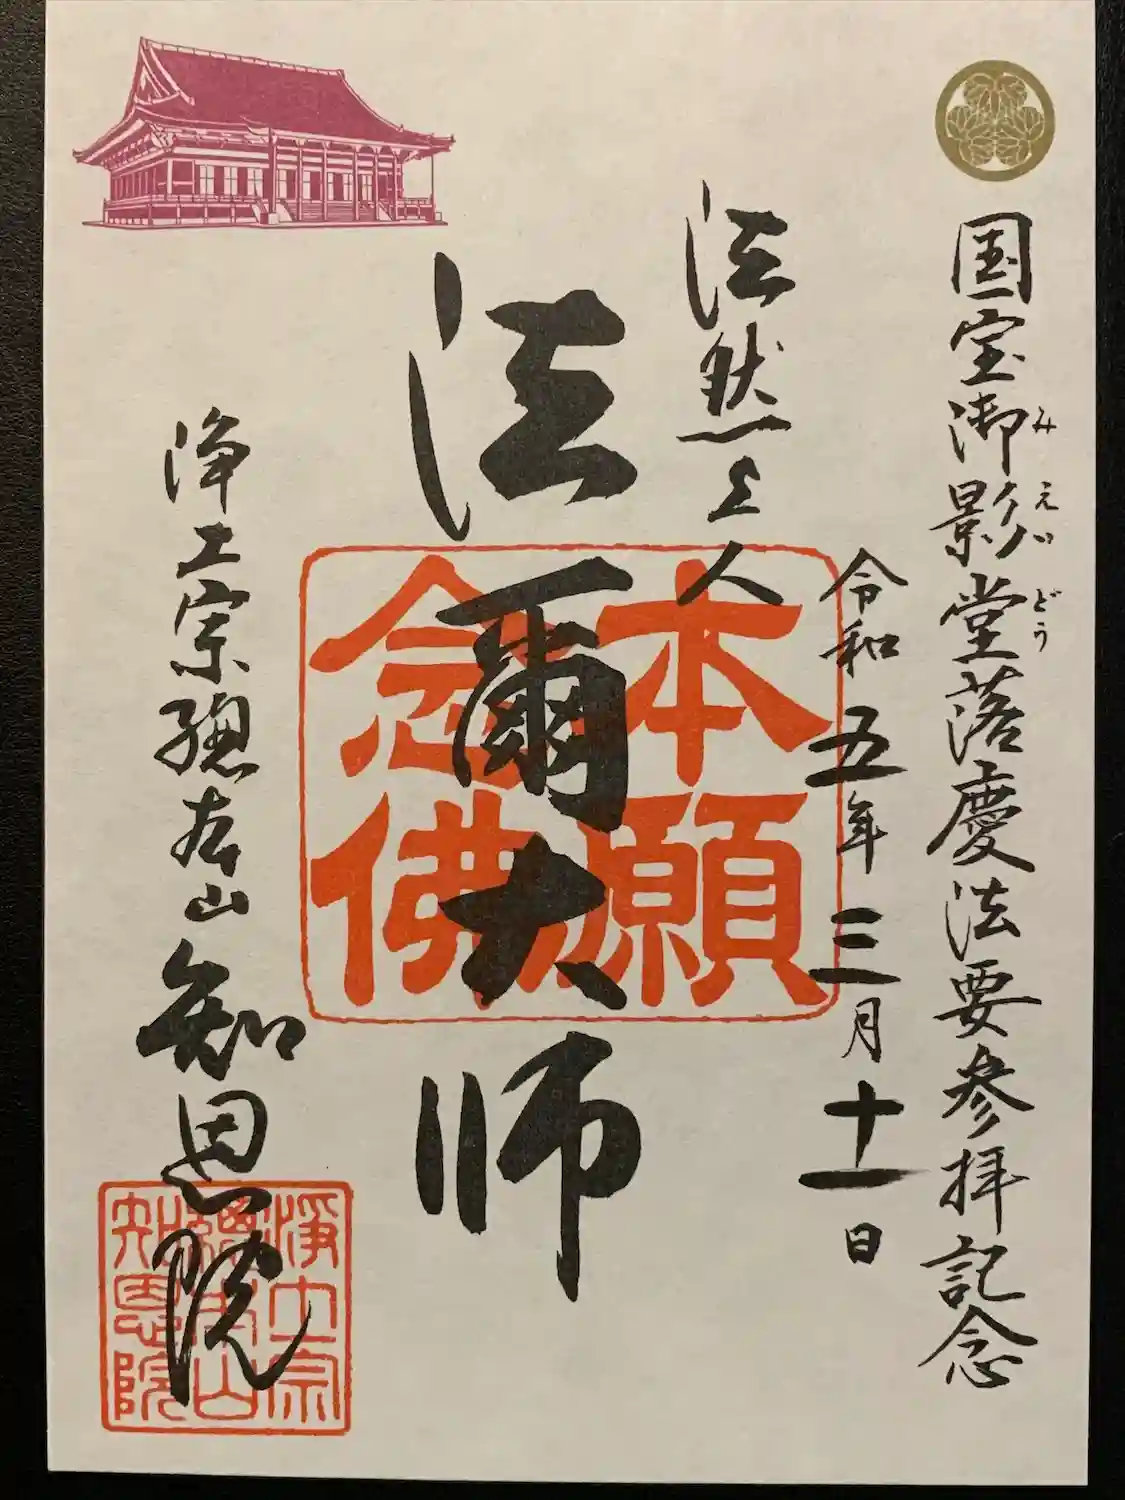 国宝御影堂落慶法要参拝記念
みえいどう
令和五年三月十一日
法然上人
法爾大師
本願
念佛
浄土宗總本山知恩院
淨土宗
總本山
知恩院